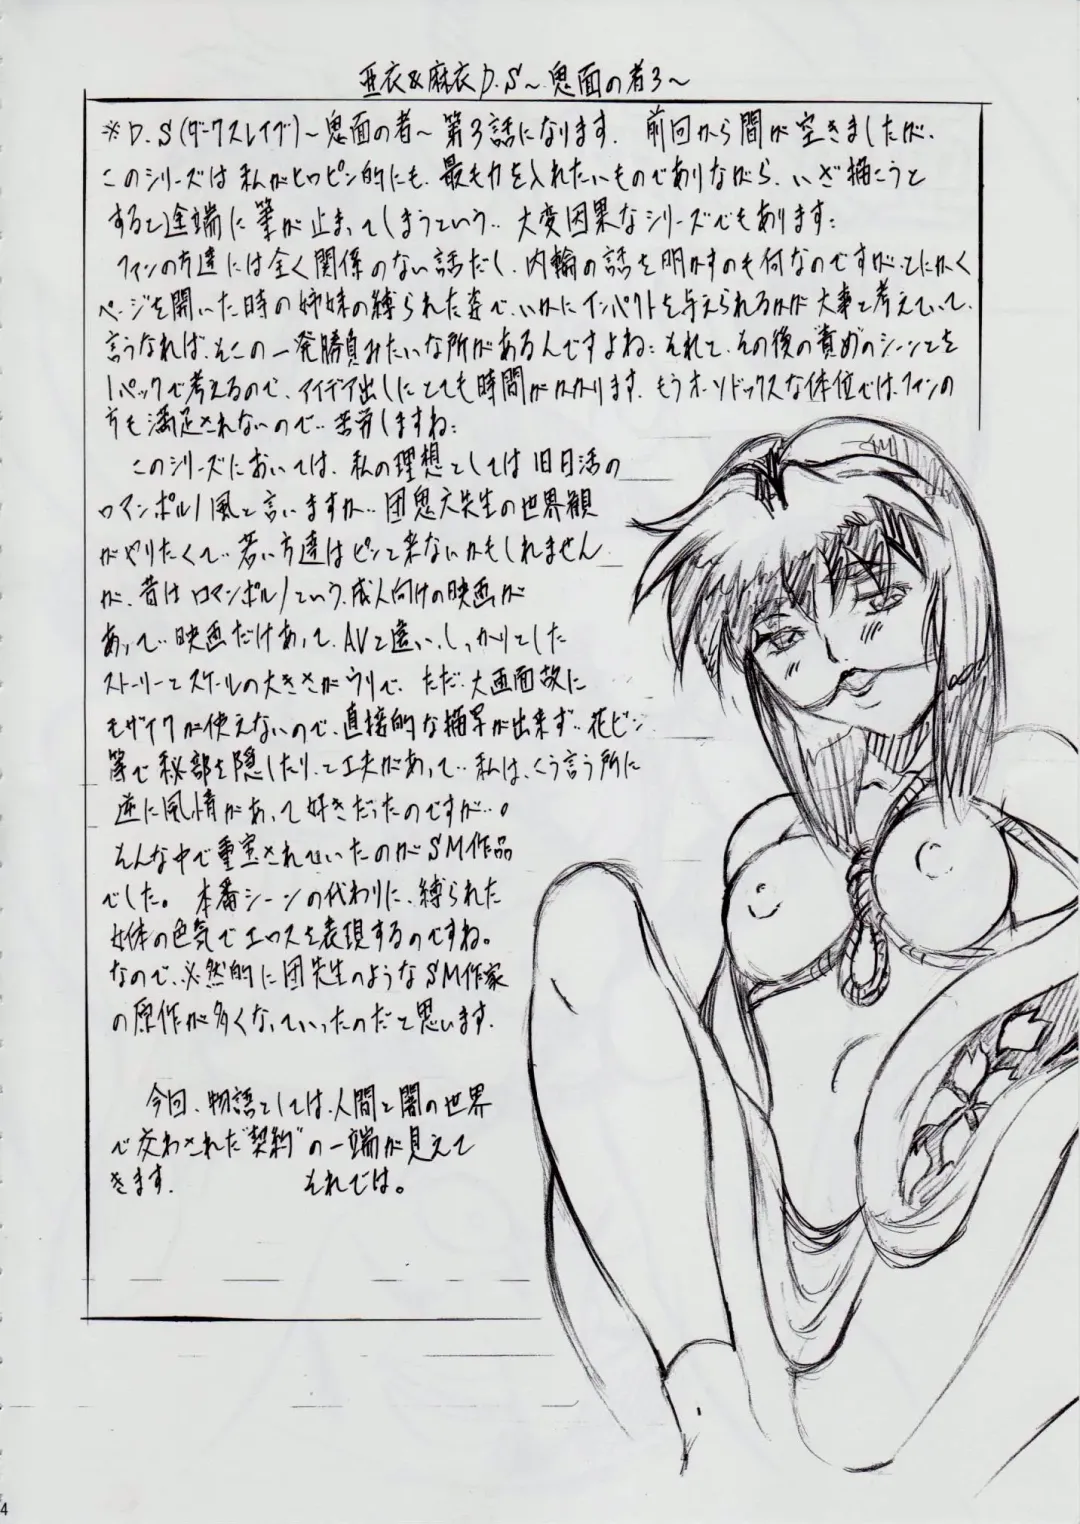 亜衣&麻衣D.S～鬼面の者3～
※D.S(ダークスレイブ)～鬼面の者～第3話になります. 前回から間が空きましたが、
このシリーズは私がヒロピン的にも、最も力を入れたいものでありながら、いざ描こうと
すると途端に筆が止まってしまうという‥大変因果なシリーズでもあります;
ファンの方達には全く関係のない話だし、内輪の話を明かすのも何なのですが、とにかく
ページを開いた時の姉妹の縛られた姿で、いかにインパクトを与えられるかが大事と考えていて、
言うなれば、そこの一発勝負みたいな所があるんですよね; それと、その後の責めのシーンとを
1パックで考えるので、アイデア出しにとても時間がかかります. もうオーソドックスな体位では、ファンの
方も満足されないので‥苦労しますね;
このシリーズにおいては、私の理想としては旧日活の
ロマンポルノ風と言いますか‥団鬼六先生の世界観
がやりたくて‥若い方達はピンと来ないかもしれません
が、昔はロマンポルノという、成人向けの映画が
あって‥映画だけあって、AVと違い、しっかりとした
ストーリーとスケールの大きさがウリで、ただ、大画面故に
モザイクが使えないので、直接的な描写が出来ず‥花ビン
等で秘部を隠したり、と工夫があって‥私は、こう言う所に
逆に風情があって好きだったのですが‥。
そんな中で重宝されていたのがSM作品
でした。本番シーンの代わりに、縛られた
女体の色気でエロスを表現するのですね。
なので、必然的に団先生のようなSM作家
の原作が多くなっていったのだと思います.
今回、物語としては、人間と闇の世界
で交わされた"契約"の一端が見えて
きます. それでは。
4